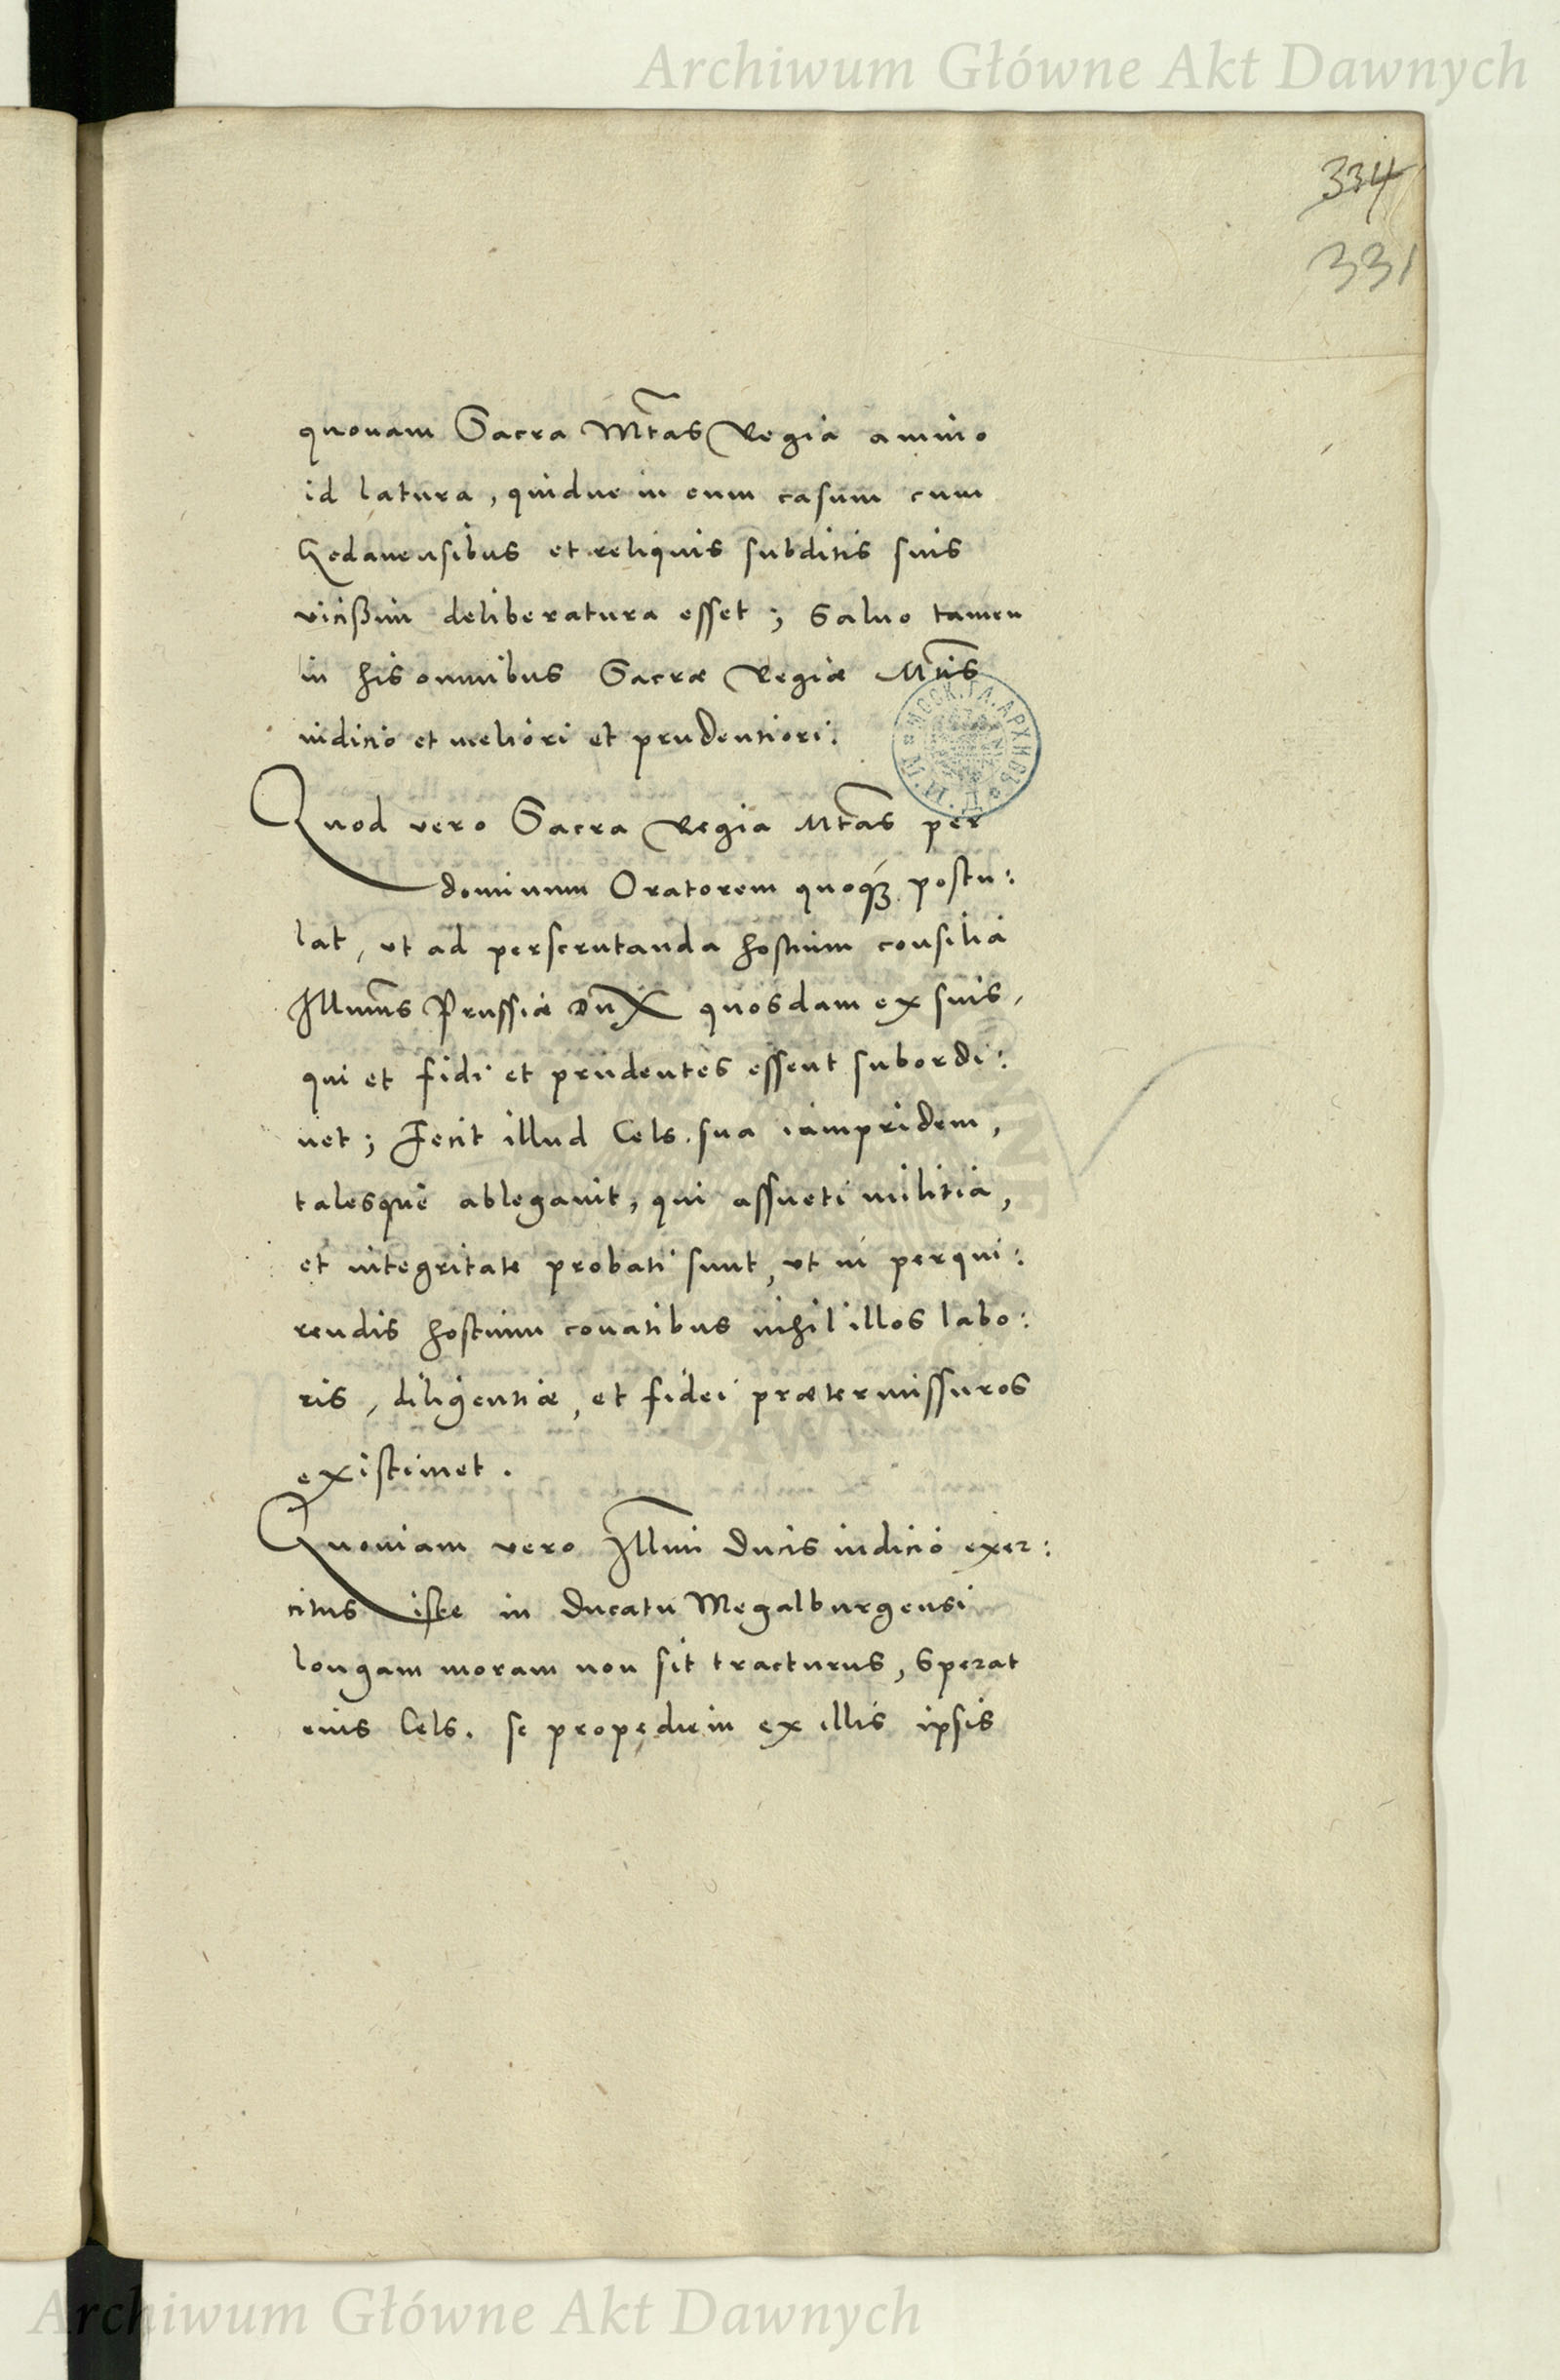 Archiwum Główne Akt Dawnych
334
331
quonam Sacra Mtas Regia animo
id latura, quidue in eum casum cum
Gedanensibus et reliquis subditis suis
vicißim deliberatura esset; Saluo tamen
in his omnibus Sacræ Regiæ Mtis
iudicio et meliori et prudentiori.
Quod vero Sacra Regia Mtas per
dominum Oratorem quoqꝫ postu:
lat, vt ad perscrutanda hostium consilia
Illmus Prussiæ Dux quosdam ex suis,
qui et fidi et prudentes essent subordi:
net; Fecit illud Cels. sua iampridem,
talesque ablegauit, qui assueti militia,
et integritate probati sunt, vt in perqui:
rendis hostium conatibus nihil illos labo:
ris, diligentiæ, et fidei prætermissuros
existimet.
Quoniam vero Illmi Ducis iudicio exer:
citus iste in Ducatu Megalburgensi
longam moram non sit tracturus, Sperat
eius Cels. se propediem ex illis ipsis
Archiwum Główne Akt Dawnych